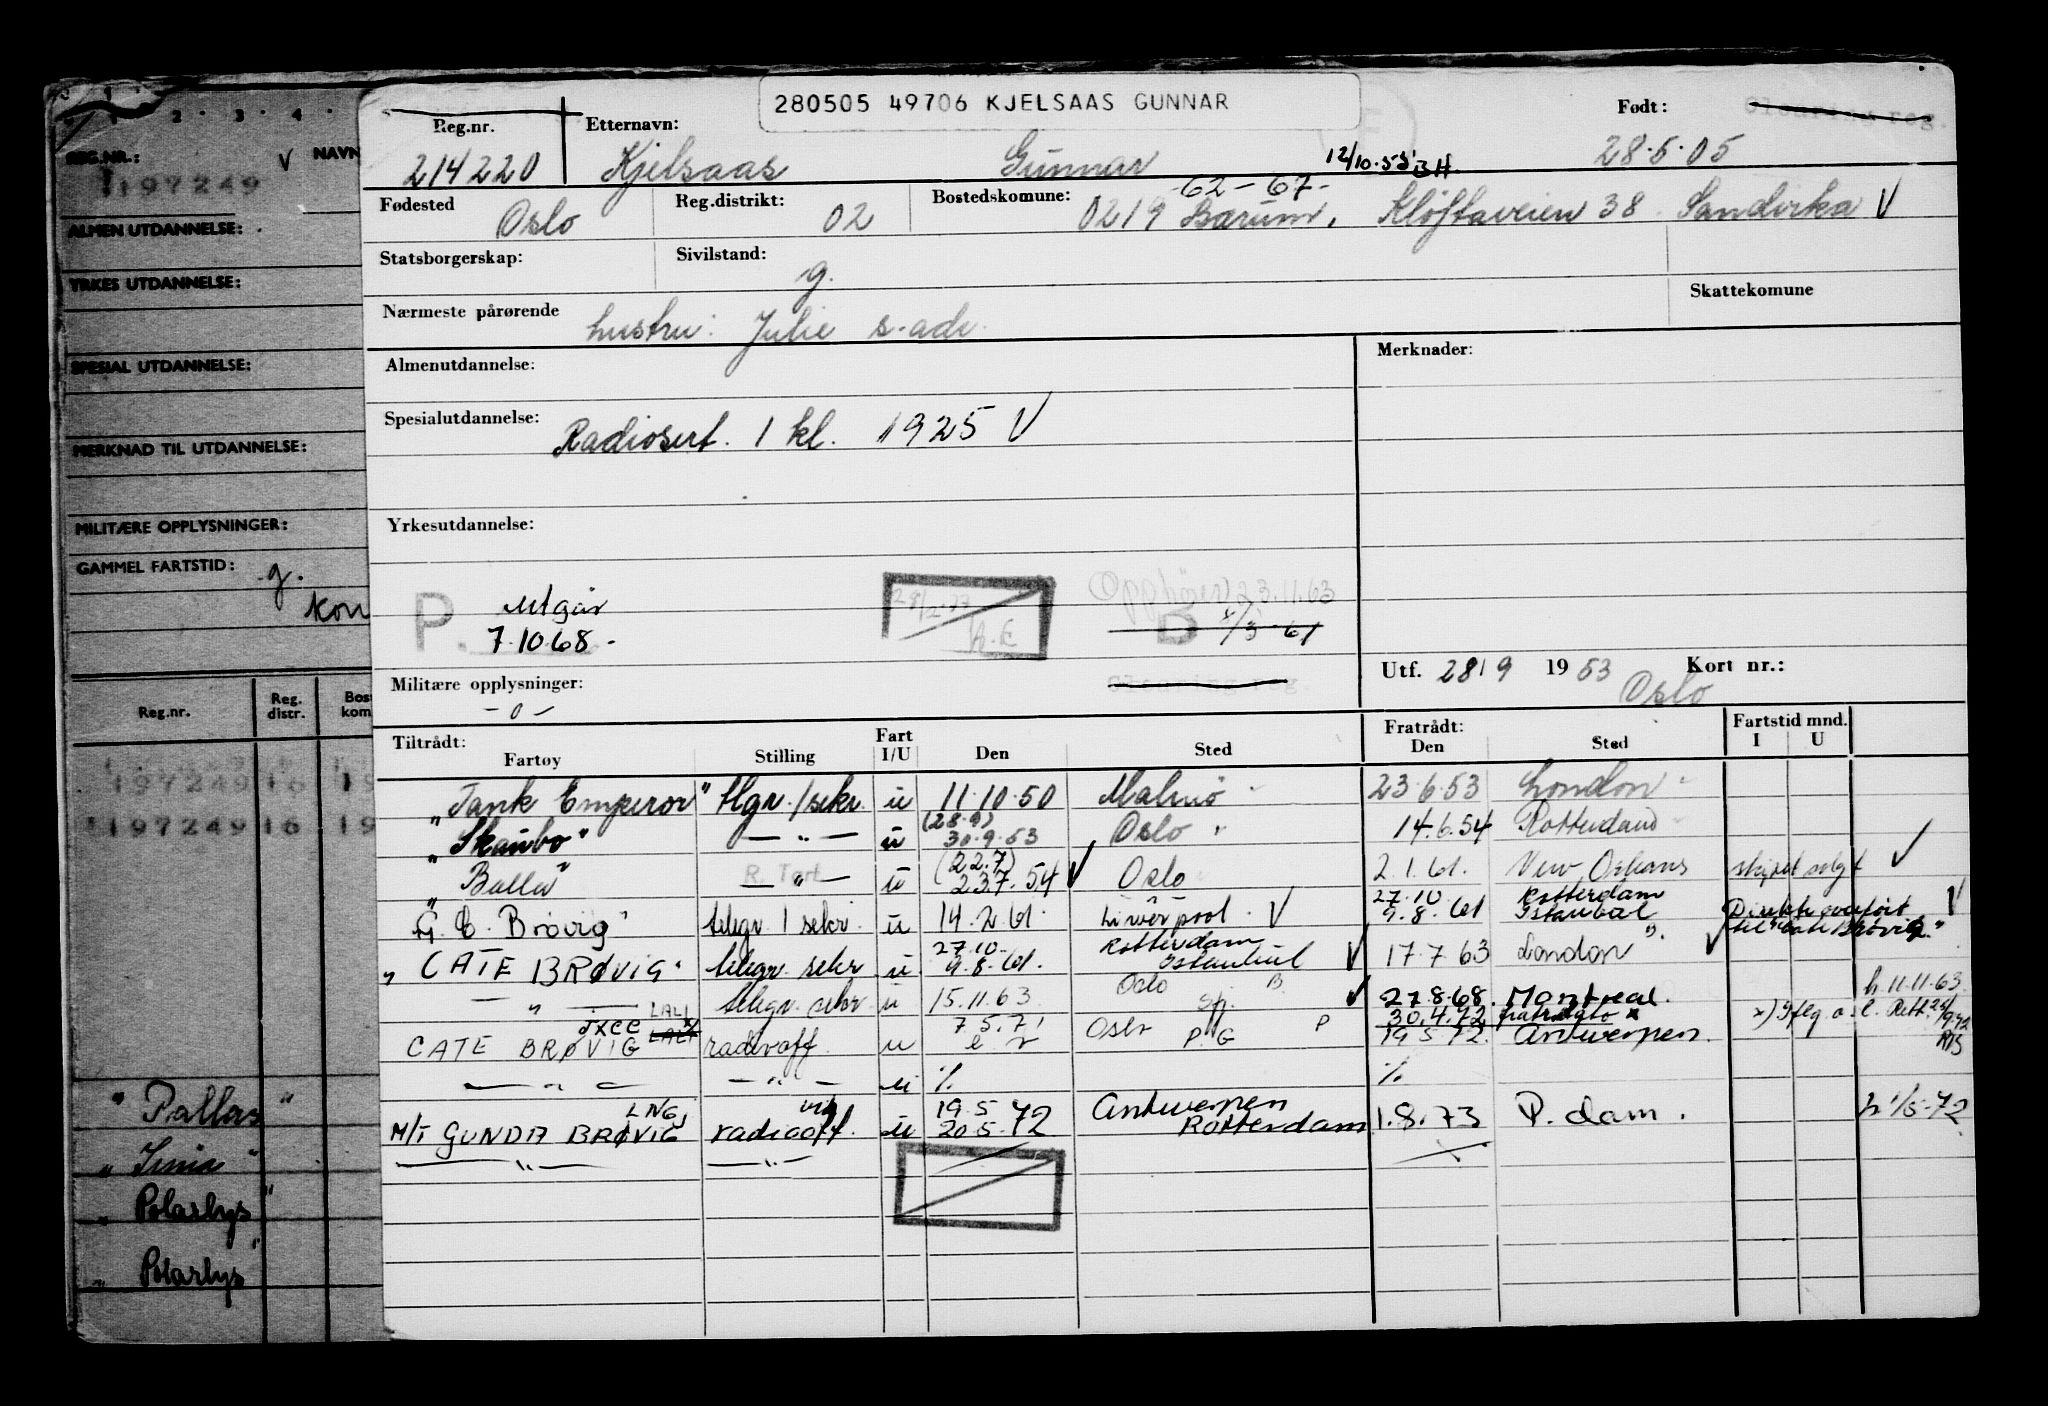 280505 49706 KJELSAAS GUNNAR
Reg.nr. Etternavn: Født:
214220 Kjelsaas Gunnar 12/10.55 BH 28.5.05
-62-67-
Fødested Oslo Reg.distrikt: 02 Bostedskomune: 0219 Bærum, Kløftaveien 38 Sandvika V
Statsborgerskap: Sivilstand: g.
Nærmeste pårørende hustru: Julie s. adr. Skattekomune
Almenutdannelse: Merknader:
Spesialutdannelse: Radiosert. 1 kl. 1925 V
Yrkesutdannelse:
Opphører 23.11.63
P. Utgår
7.10.68.-
Militære opplysninger: -o-
Utf. 28/9 1953 Kort nr.:
Oslo
Tiltrådt: Fartøy Stilling Fart I/U Den Sted Fratrådt: Den Sted Fartstid mnd. I U
"Tank Emperor" tlgr./sekr. u 11.10.50 Malmø 23.6.53 London
"Skaubo" — " — u (28.9) 30.9.53 Oslo 14.6.54 Rotterdam
— " — u (22.7) 23.7.54 V Oslo 2.1.61. New Orleans skipet solgt V
G. C. Brøvig telegr./sekr. u 14.2.61. Liverpool. V 27.10 9.8.61 Rotterdam Istanbul Direkte overført til "Cate Brøvig" V
"CATE BRØVIG" telegr. sekr u 27.10. 9.8.61. Rotterdam Istanbul V 17.7.63 London
— " — telegr. sekr. u 15.11.63 Oslo V 27.8.68. Montreal. h. 11.11.63
CATE BRØVIG JXCC radiooff. u 7.5.71 Oslo P.G P 30.4.72 fratrådte x 19.5.72. Antwerpen.
— " — — " — u % %
M/T GUNDA BRØVIG LNGJ radiooff. u 19.5 20.5.72 Antwerpen Rotterdam 1.8.73 P. dam. h 1/5-72
— " — — " —
REG.NR.: V NAVN
197249
ALMEN UTDANNELSE:
YRKES UTDANNELSE:
SPESIAL UTDANNELSE:
MERKNAD TIL UTDANNELSE:
MILITÆRE OPPLYSNINGER:
GAMMEL FARTSTID: g.
kon
Reg.nr. Reg. distr. Bos kom
197249 16 1
197249 16 19
"Pallas"
"Polarlys"
"Polarlys"